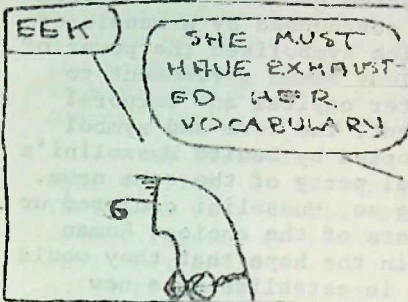 EEK
SHE MUST
HAVE EXHAUST
ED HER
VOCABULARY
6